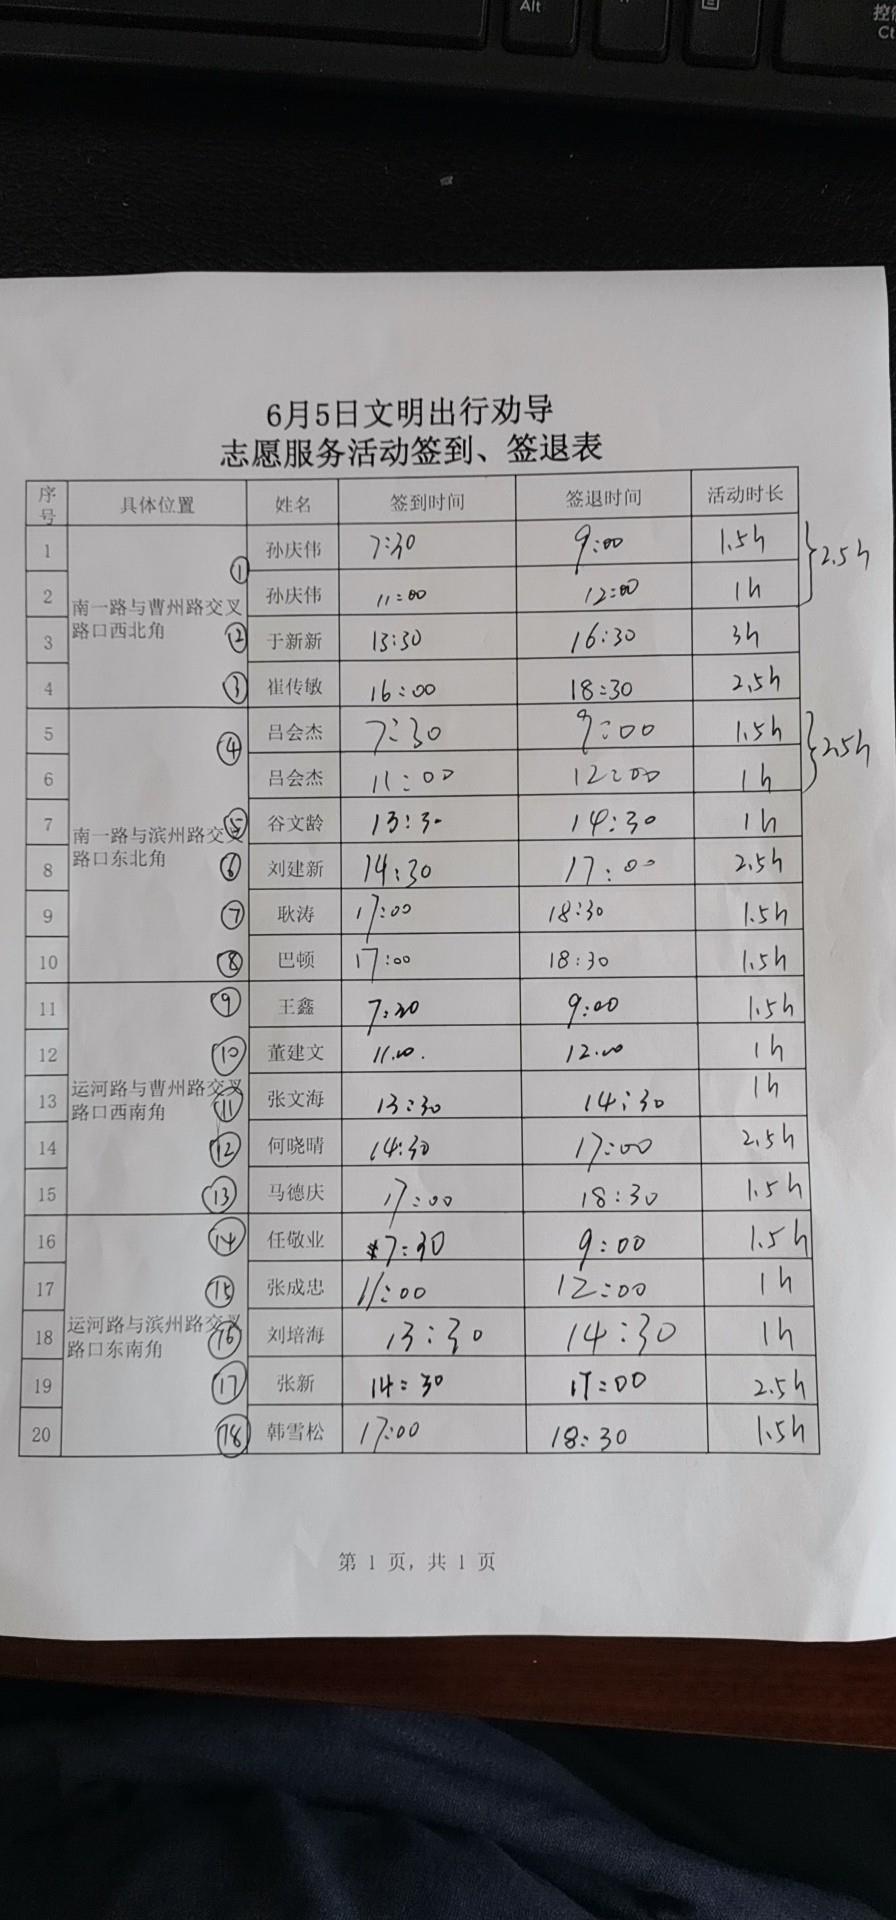 Alt
控制
Ct
6月5日文明出行劝导
志愿服务活动签到、签退表
序号 具体位置 姓名 签到时间 签退时间 活动时长
1 南一路与曹州路交叉路口西北角 ① 孙庆伟 7:30 9:00 1.5h
2 孙庆伟 11:00 12:00 1h } 2.5h
3 ② 于新新 13:30 16:30 3h
4 ③ 崔传敏 16:00 18:30 2.5h
5 南一路与滨州路交叉路口东北角 ④ 吕会杰 7:30 9:00 1.5h
6 吕会杰 11:00 12:00 1h } 2.5h
7 ⑤ 谷文龄 13:30 14:30 1h
8 ⑥ 刘建新 14:30 17:00 2.5h
9 ⑦ 耿涛 17:00 18:30 1.5h
10 ⑧ 巴顿 17:00 18:30 1.5h
11 运河路与曹州路交叉路口西南角 ⑨ 王鑫 7:30 9:00 1.5h
12 ⑩ 董建文 11.00. 12.00 1h
13 ⑪ 张文海 13:30 14:30 1h
14 ⑫ 何晓晴 14:30 17:00 2.5h
15 ⑬ 马德庆 17:00 18:30 1.5h
16 运河路与滨州路交叉路口东南角 ⑭ 任敬业 7:30 9:00 1.5h
17 ⑮ 张成忠 11:00 12:00 1h
18 ⑯ 刘培海 13:30 14:30 1h
19 ⑰ 张新 14:30 17:00 2.5h
20 ⑱ 韩雪松 17:00 18:30 1.5h
第 1 页，共 1 页